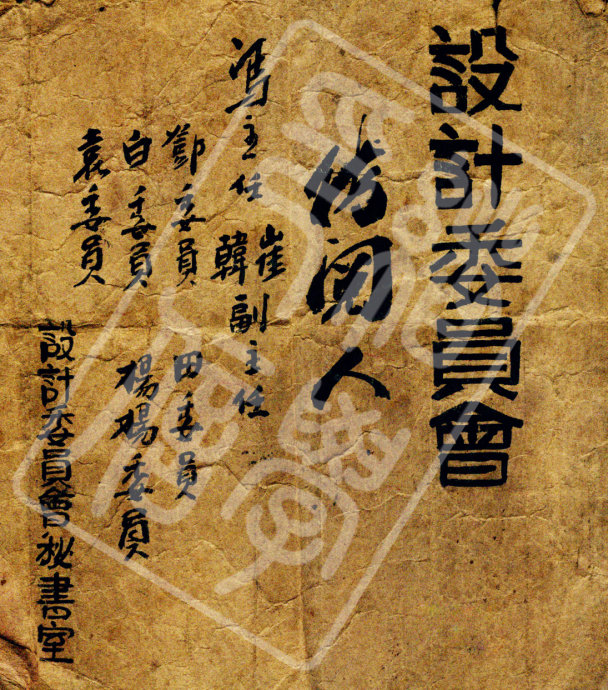 設計委員會
傳閱人
馮主任
崔韓副主任
鄧委員
田委員
白委員
楊楊委員
袁委員
設計委員會秘書室